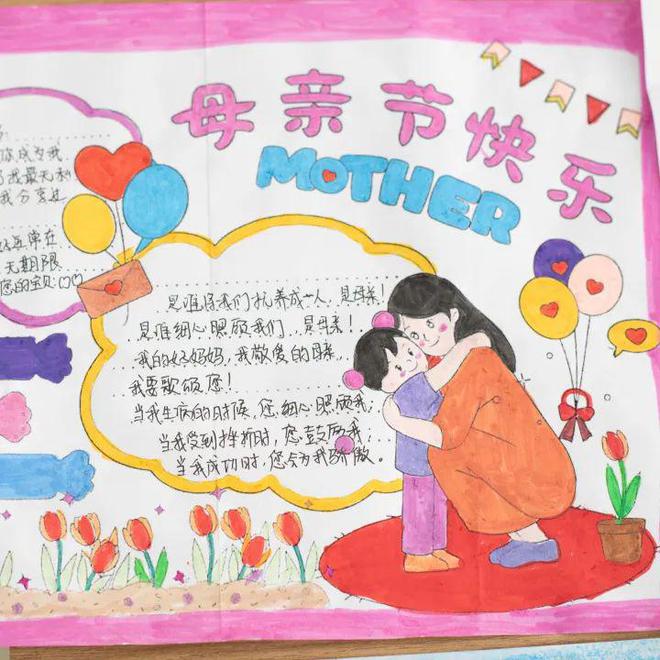 母亲节快乐
MOTHER
是谁将我们抚养成人,是母亲!
是谁细心照顾我们,是母亲!
我的好妈妈,我敬爱的母亲,
我要歌颂您!
当我生病的时候,您细心照顾我;
当我受到挫折时,您鼓励我;
当我成功时,您会为我骄傲。
你成为我
我最无私
我分享
无期限
您的宝贝